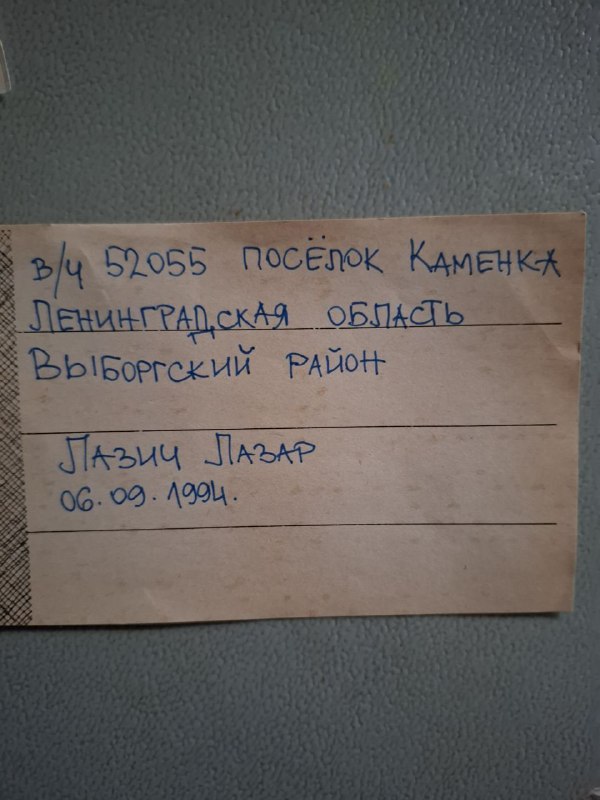 в/ч 52055 посёлок Каменка
Ленинградская область
Выборгский район
Лазич Лазар
06.09.1994.